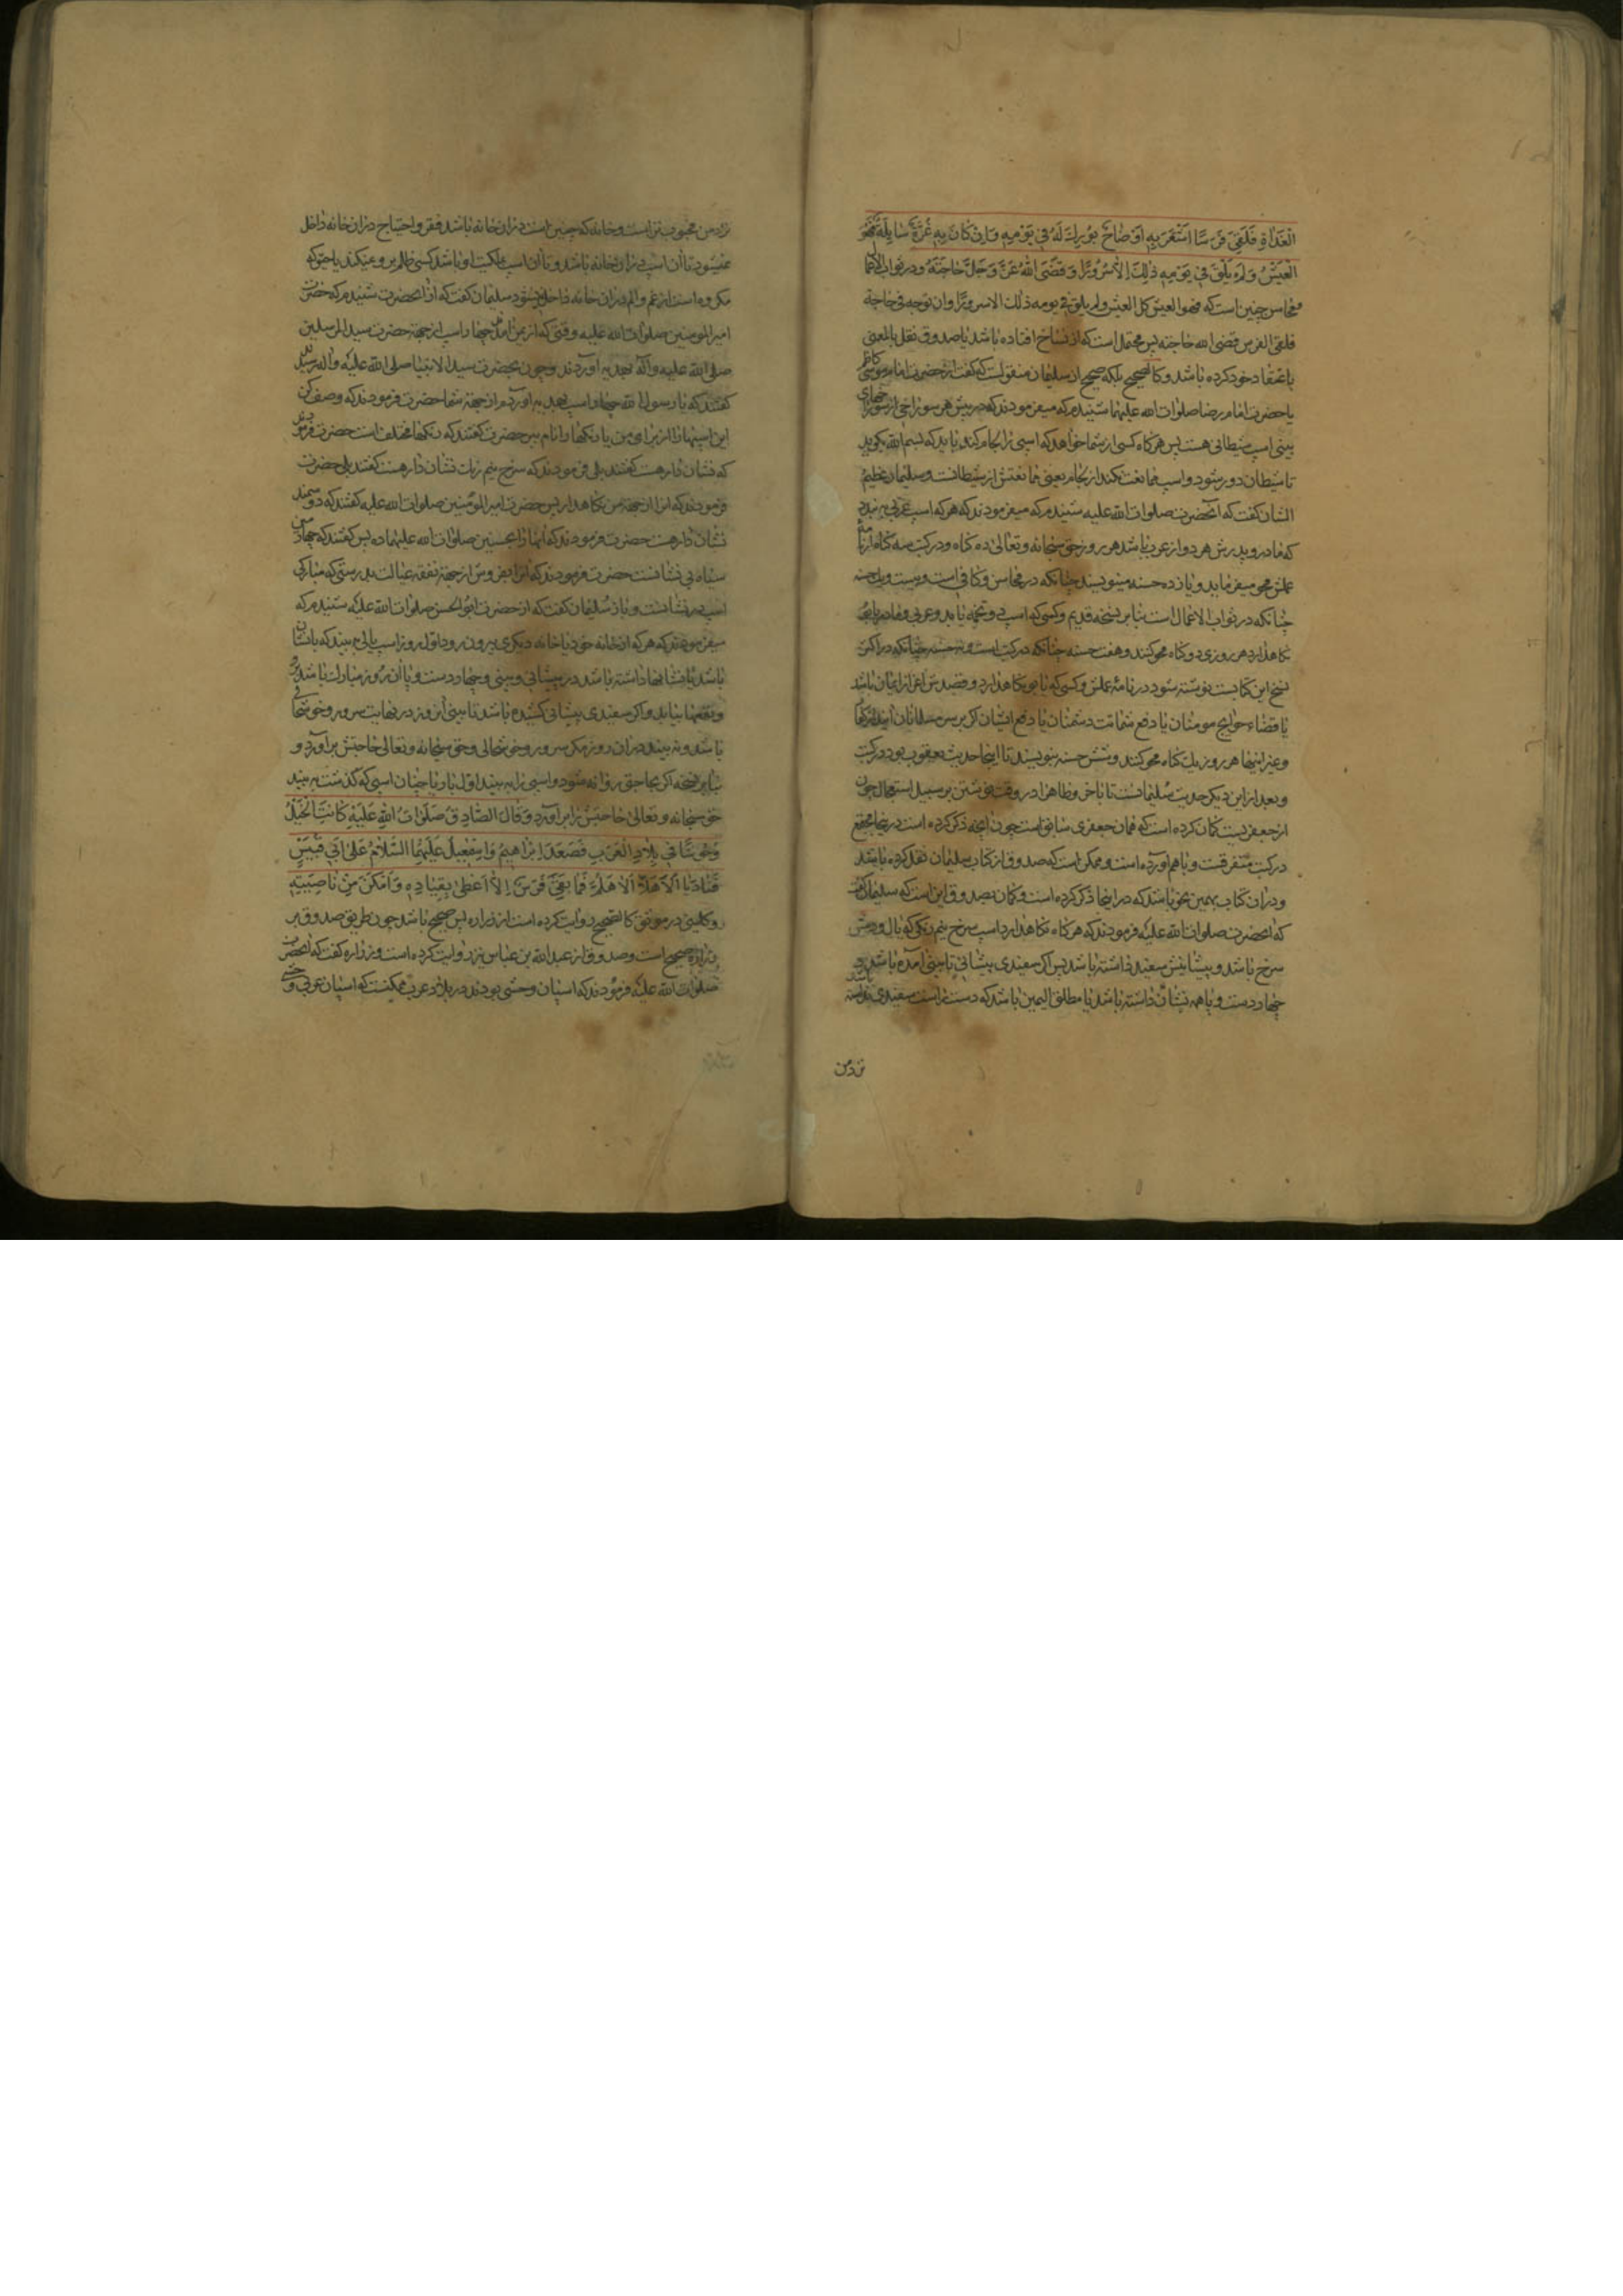 الْغَدَاةِ فَلَقِيَ فَرَسًا اَشْقَرَ بِهِ اَوْضَاحٌ بُورِكَ لَهُ فِي يَوْمِهِ وَاِنْ كَانَ بِهِ غُرَّةٌ سَايِلَةٌ فَهُوَ
الْعَيْشُ وَلَمْ يَلْقَ فِي يَوْمِهِ ذٰلِكَ اِلَّا سُرُورًا وَقَضَى اللهُ عَزَّ وَجَلَّ حَاجَتَهُ ودر ثواب الاعمال
و محاسن چنین است که فهو العیش کل العیش ولم یلق فی یومه ذلك الا سرورًا وان توجه فی حاجة
فلقی الفرس قضی الله حاجته پس محتمل است که از نساخ افتاده باشد یا صدوق نقل بالمعنی
باعتقاد خود کرده باشد و کالصحیح بلکه صحیح از سلیمان منقولست که گفت از حضرت امام موسی کاظم
یا حضرت امام رضا صلوات الله علیهما شنیدم که میفرمودند که در پیش هر سوراخی از سوراخهای
بینی اسپ شیطانی هست پس هرگاه کسی از شما خواهد که اسپی را لجام کند باید که بسم الله بگوید
تا شیطان دور شود و اسپ ممانعت نکند از لجام یعنی ممانعتش از شیطانست و سلیمان عظیم
الشان گفت که آنحضرت صلوات الله علیه شنیدم که میفرمودند که هر که اسپ عربی به بندد
که مادر و پدرش هر دو از عرب باشد هر روز حق سبحانه و تعالی ده گناه و در کتب سه گناه از نامهٔ
عملش محو میفرماید و یازده حسنه مینویسند چنانکه در محاسن و کافی است و بیست و یك حسنه
چنانکه در ثواب الاعمال است بنابر نسخه قدیم و کسی که اسپ دوتخمه یابد و عربی و مادر یابو
نگاهدارد هر روزی دو گناه محو کنند و هفت حسنه چنانکه در کتب است و نه حسنه چنانکه در اکثر
نسخ این کتابست نوشته شود در نامهٔ عملش و کسی که یابو نگاهدارد و قصدش اعزاز ایمان باشد
یا قضاء حوایج مومنان یا دفع شماتت دشمنان یا دفع ایشان اگر بر سر مسلمانان آیند
و غیر اینها هر روز یك گناه محو کنند و شش حسنه بنویسند تا اینجا حدیث یعقوب بود در کتب
و بعد از این دیگر حدیث سلیمانست تا باخر و ظاهرا در وقت نوشتن بر سبیل استعجال چون
از جعفریست گمان کرده است که همان جعفری سابق است چون آنچه ذکر کرده است در اینجا مجتمع
در کتب متفرقست و باهم آورده است و ممکن است که صدوق از کتاب سلیمان نقل کرده باشد
و در ان کتاب بهمین نحو باشد که در اینجا ذکر کرده است و گمان بصدوق این است که سلیمان گفت
که آنحضرت صلوات الله علیه فرمودند که هرگاه نگاهدارد اسپ سرخ نیم رنگی که یال و دمش
سرخ باشد و پیشانیش سفید داشته باشد پس اگر سفیدی پیشانی تا بینی آمده باشد و
چهار دست و پا همه نشان داشته باشد یا مطلق الیمین باشد که دست راست سفیدی نداشته باشد
نزد من
نزد من محبوب تر است و خانه که چنین است در ان خانه باشد فقر و احتیاج در ان خانه داخل
نمیشود تا ان اسپ در ان خانه باشد و تا ان اسپ ملکیت او باشد کسی ظلم بر او نمیکند یا حق که
مکروه است از غم والم در ان خانه داخل نمیشود سلیمان گفت که از آنحضرت شنیدم که حضرت
امیر المومنین صلوات الله علیه وقتی که از یمن امدند چهار اسپ از جهة حضرت سید المرسلین
صلی الله علیه واله بهدیه آوردند و چون بحضرت سید الانبیا صلی الله علیه واله رسیدند
گفتند که یا رسول الله چهار اسپ بهدیه آوردم از جهة شما حضرت فرمودند که وصف کن
این اسپها را از برای من یا رنگها را نام ببر حضرت گفتند که رنگها مختلف است حضرت فرمودند
که نشان دار هست گفتند بلی فرمودند که سرخ نیم رنك نشان دار هست گفتند بلی حضرت
فرمودند که انرا از جهة من نگاهدار پس حضرت امیر المؤمنین صلوات الله علیه گفتند که دو سمند
نشان دار هست حضرت فرمودند که آنها را بحسنین صلوات الله علیهما ده پس گفتند که چهارمین
سیاه بی نشانست حضرت فرمودند که انرا بفروش از جهة نفقه عیالت بدرستی که مبارکی
اسپ در نشانست و باز سلیمان گفت که از حضرت ابو الحسن صلوات الله علیه شنیدم که
میفرمودند که هر که از خانه خود یا خانه دیگری بیرون رود اول روز اسپ یالی بیند که با نشان
باشد یا نشانها داشته باشد در پیشانی و بینی و چهار دست و پا آن روز مبارك باشد بر او
و نعمتها بیابد و اگر سفیدی پیشانی کشیده باشد تا بینی آنروز در نهایت سرور و خوشحالی
باشد و نه بیند در ان روز مگر سرور و خوشحالی و حق سبحانه و تعالی حاجتش برآورد و
بنابر نسخه اگر بجا حق روانه شود و اسپی را به بیند اول بار یا چنان اسپی که گذشت به بیند
حق سبحانه و تعالی حاجتش را برآورد وَقَالَ الصَّادِقُ صَلَوَاتُ اللهِ عَلَيْهِ كَانَتِ الْخَيْلُ
وُحُوشًا فِي بِلَادِ الْعَرَبِ فَصَعِدَ اِبْرَاهِيمُ وَاِسْمٰعِيلُ عَلَيْهِمَا السَّلَامُ عَلَى اَبِي قُبَيْسٍ
فَنَادَيَا اَلَا هَلَا اَلَا هَلُمَّ فَمَا بَقِيَ فَرَسٌ اِلَّا اَعْطٰى بِقِيَادِهِ وَاَمْكَنَ مِنْ نَاصِيَتِهِ
و کلینی در موثق کالصحیح روایت کرده است از زراره پس صحیح باشد چون طریق صدوق بر
زراره صحیح است و صدوق از عبدالله بن عباس نیز روایت کرده است و زراره گفت که آنحضرت
صلوات الله علیه فرمودند که اسپان وحشی بودند در بلاد عرب ممکنست که اسپان عربی وحشی